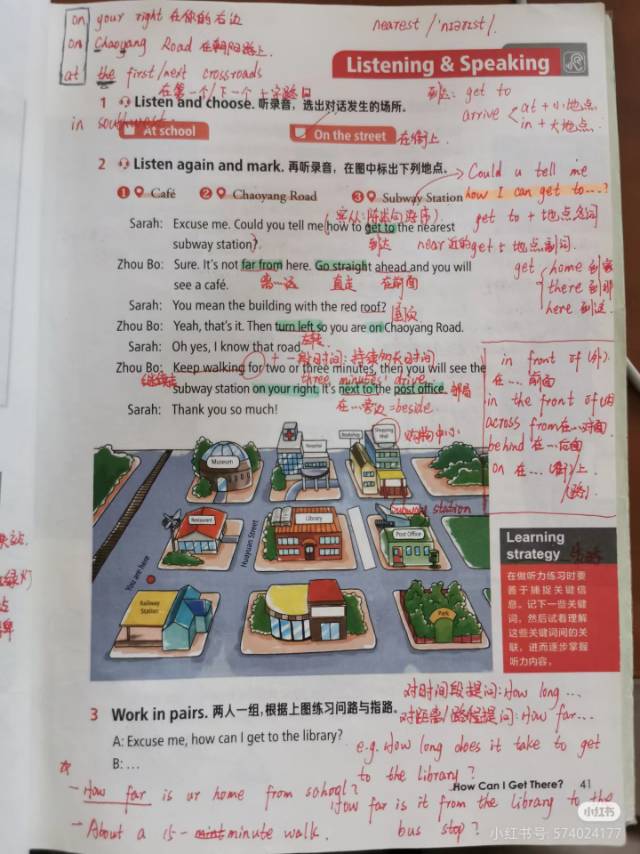 on your right 在你的右边
on Chaoyang Road 在朝阳路上.
at the first/next crossroads
在第一个/下一个十字路口
in southwest
nearest /'nɪərɪst/.
Listening & Speaking
到达: get to
arrive at + 小地点
in + 大地点.
1 Listen and choose. 听录音，选出对话发生的场所。
At school
On the street
在街上
2 Listen again and mark. 再听录音，在图中标出下列地点。
1 Café
2 Chaoyang Road
3 Subway Station
Could u tell me
how I can get to...?
get to + 地点名词
get + 地点副词.
get home 到家
there 到那
here 到这
(宾从: 陈述句语序)
Sarah: Excuse me. Could you tell me how to get to the nearest
subway station?
到达
near 近的
Zhou Bo: Sure. It's not far from here. Go straight ahead and you will
see a café.
离…远
直走
在前面
Sarah: You mean the building with the red roof?
屋顶
Zhou Bo: Yeah, that's it. Then turn left so you are on Chaoyang Road.
左转
Sarah: Oh yes, I know that road.
+ 一段时间: 持续多长时间
Zhou Bo: Keep walking for two or three minutes, then you will see the
继续走
three minutes' drive
subway station on your right. It's next to the post office.
邮局
在…旁边 = beside
Sarah: Thank you so much!
in front of (外).
在…前面
in the front of (内)
across from 在…对面
behind 在…后面
on 在…(街)上
(路)
购物中心
Museum
Hospital
Bookshop
Shopping Mall
subway station
Restaurant
Library
Post Office
Huayuan Street
You are here
Railway Station
Park
Learning
strategy
乐游
在做听力练习时要
善于捕捉关键信
息。记下一些关键
词，然后试着理解
这些关键词间的关
联，进而逐步掌握
听力内容。
对时间段提问: How long ...
对距离/路程提问: How far ...
3 Work in pairs. 两人一组，根据上图练习问路与指路。
A: Excuse me, how can I get to the library?
B: ...
e.g. How long does it take to get
to the library?
How Can I Get There? 41
- How far is ur home from school?
How far is it from the library to the
bus stop?
- About a 15-minute walk.
小红书
小红书号: 574024177